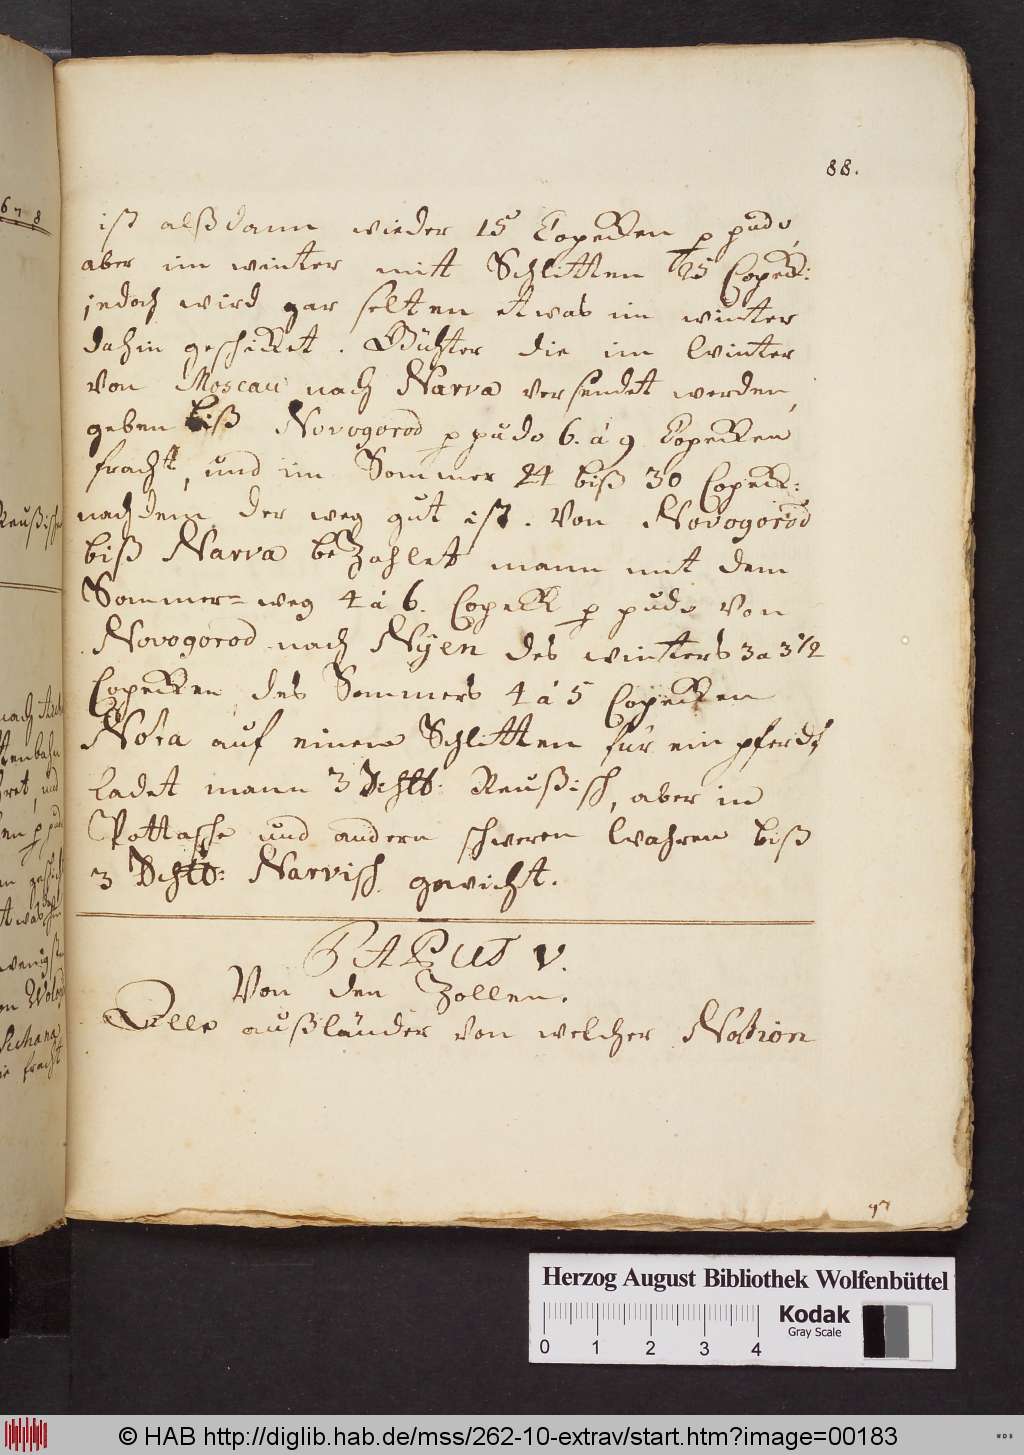 88.
ist alßdann wieder 15 Copecken p pudo,
aber im winter mitt Schlitten 25 Copeck:
jedoch wird gar selten etwas im winter
dahin geschicket. Gühter die im Winter
von Moscau nach Narva versendet werden,
geben biß Novogorod p pudo 6. á 9 Copecken
fracht, und im Sommer 24 biß 30 Copeck:
nachdem der weg gut ist. Von Novogorod
biß Narva beZahlet mann mit dem
Sommer= weg 4 á 6. Copeck p pudo Von
Novogorod nach Nÿen des winters 3 a 3 1/2
Copecken, des Sommers 4 á 5 Copecken
Nota auf einem Schlitten für ein pferdt
ladet mann 3 Sch℔: Reußisch, aber in
Pottasche und andern schweren Wahren biß
3 Sch℔: Narvisch gewicht.
CAPUT V.
Von den Zollen.
Alle außländer von welcher Nation
678
Reußische
nach
und
etwas
wenigst
fracht
Herzog August Bibliothek Wolfenbüttel
Kodak
Gray Scale
0 1 2 3 4
© HAB http://diglib.hab.de/mss/262-10-extrav/start.htm?image=00183